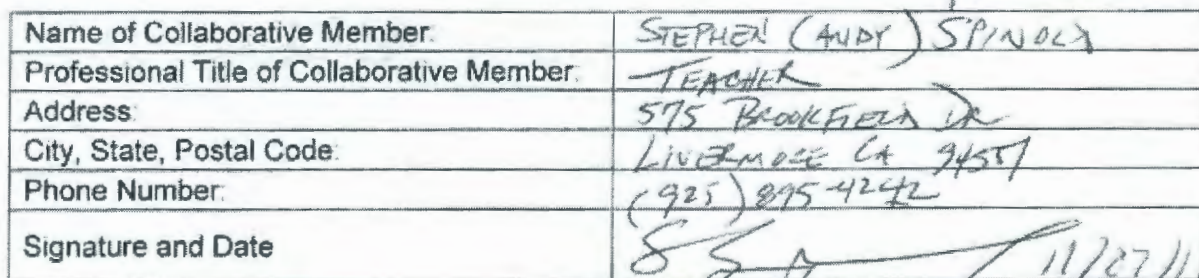 Name of Collaborative Member: STEPHEN (ANDY) SPINOLA
Professional Title of Collaborative Member: TEACHER
Address: 575 BROOKFIELD DR
City, State, Postal Code: LIVERMORE CA 94551
Phone Number: (925) 895-4242
Signature and Date 11/27/11